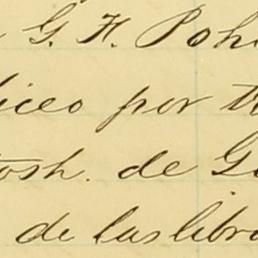 G. H. Poh
iceo por t
tosh. de G
de las libr